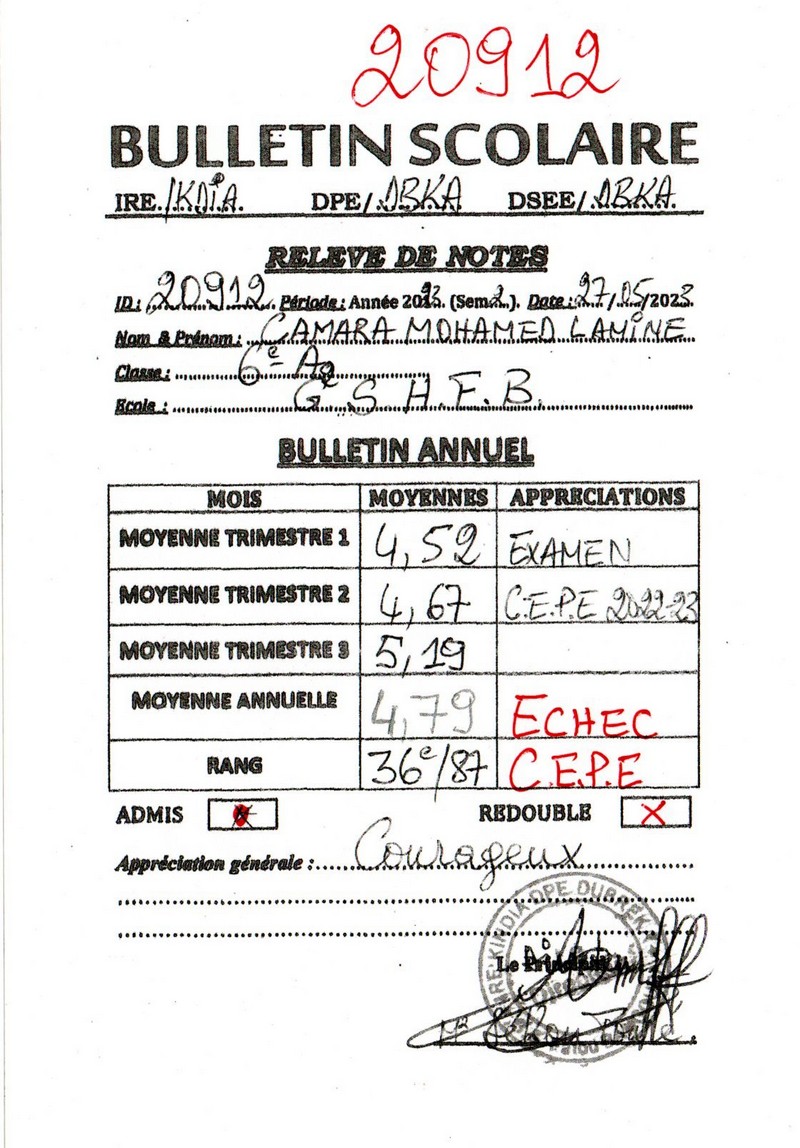 20912
BULLETIN SCOLAIRE
IRE./KDiA. DPE/.DBKA DSEE/.DBKA.
RELEVE DE NOTES
ID: 20912 Période: Année 2023. (Sem.2.). Date: 27/05/2023
Nom & Prénom: CAMARA MOHAMED LAMINE
Classe: 6e A2
Ecole: G.S H.F.B.
BULLETIN ANNUEL
MOIS MOYENNES APPRECIATIONS
MOYENNE TRIMESTRE 1 4,52 EXAMEN
MOYENNE TRIMESTRE 2 4,67 C.E.P.E 2022-23
MOYENNE TRIMESTRE 3 5,19
MOYENNE ANNUELLE 4,79 ECHEC
RANG 36e/87 C.E.P.E
ADMIS REDOUBLE X
Appréciation générale: Courageux
DPE DUBREKA
Le